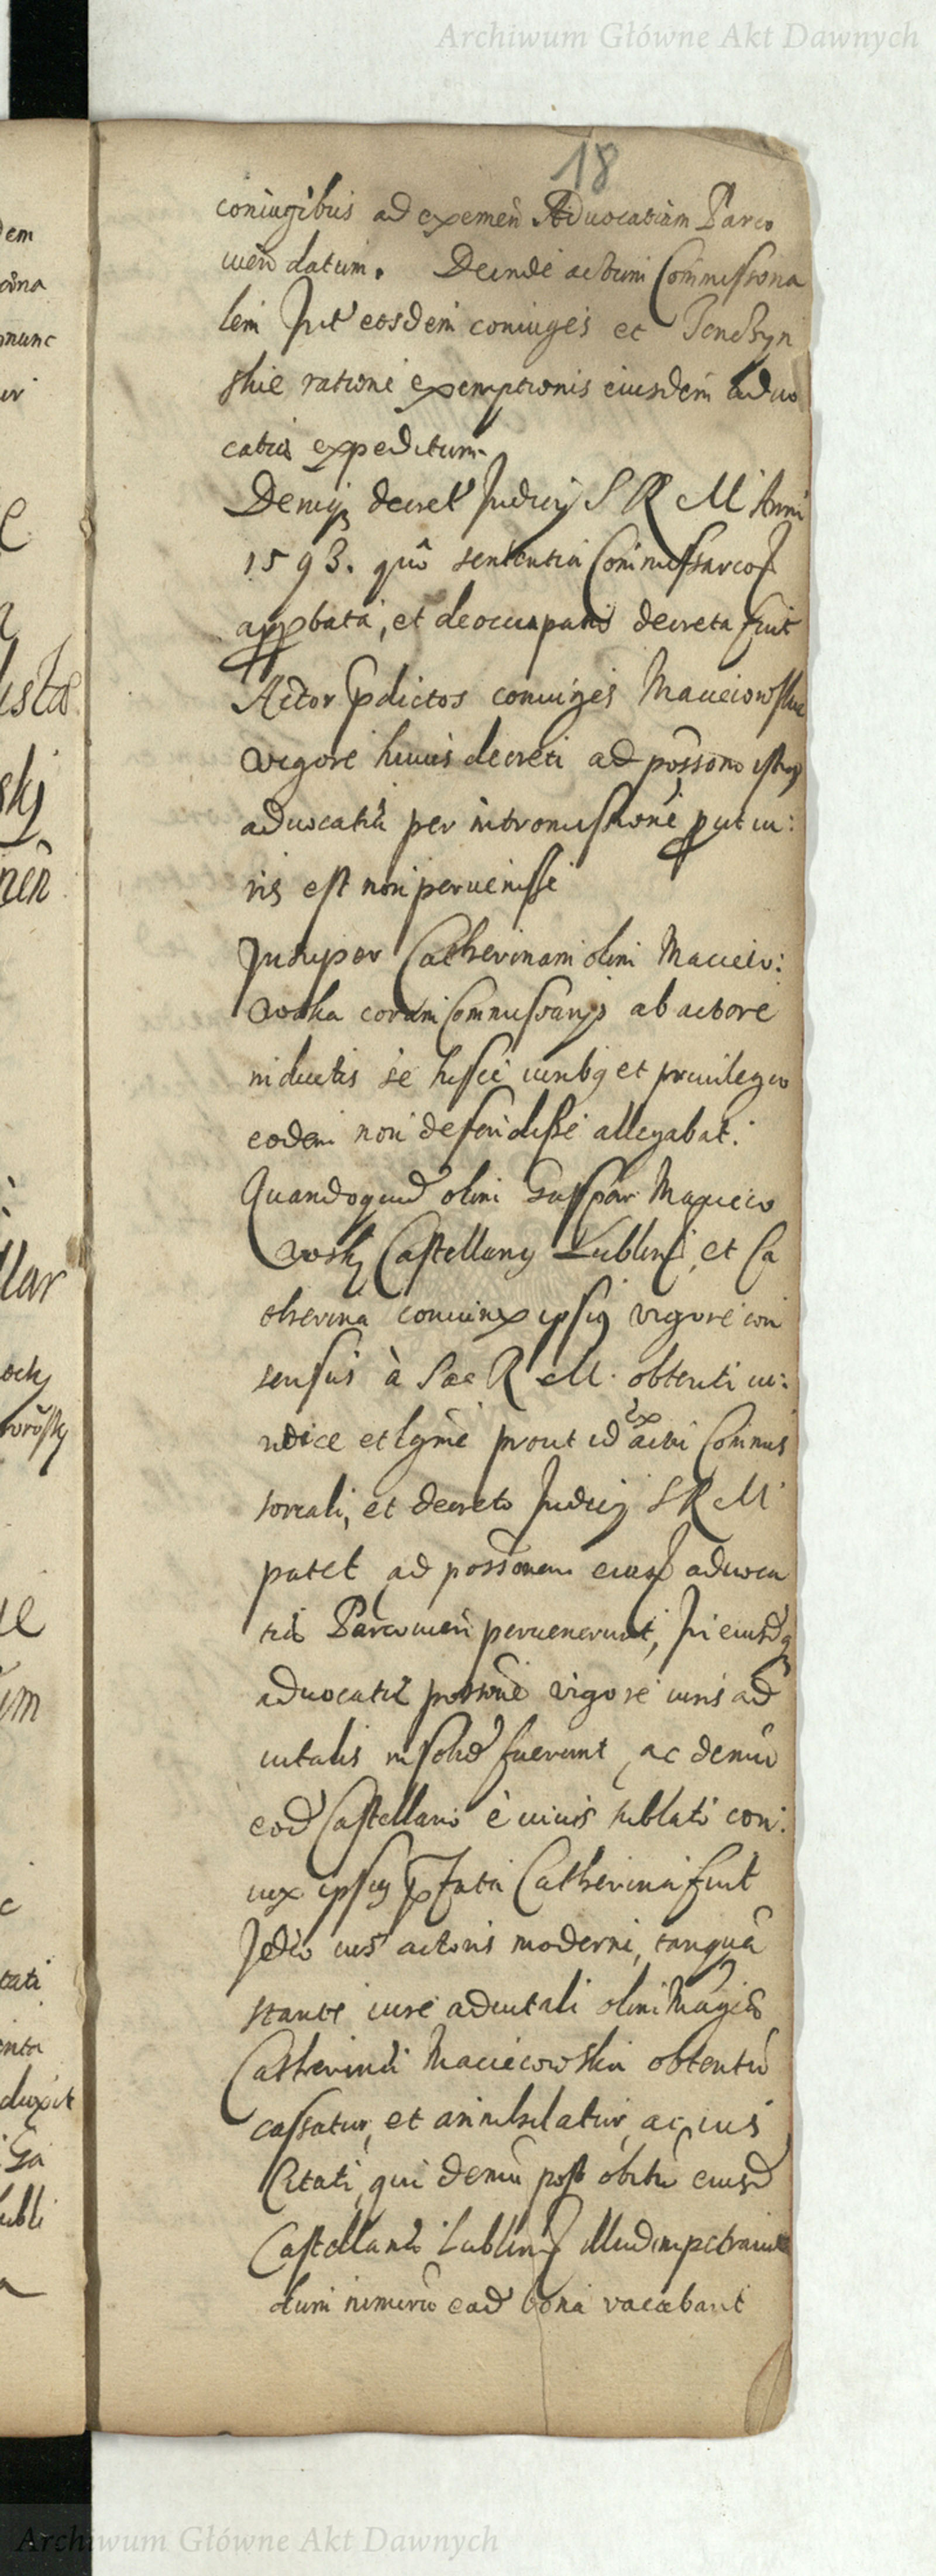 Archiwum Główne Akt Dawnych
18
coniugibus ad exemeñ Aduocatiam Parco
uieñ datum. Deinde actum Commissiona
lem Int̃ eosdem coniuges et Tenczyn
skie ratione exemptionis eiusdem aduo
catiæ expeditum.
Deniq decret Judicij S R M Anni
1593. quô sententia Commissarior
approbata, et deoccupatio decreta fuit
Actor p̃dictos coniuges Macieiowskie
vigore huius decreti ad possom istius
aduocatiæ per intromissione put iu:
ris est non peruenisse
Insuper Catherinam olim Macieio:
wska coram Commissarijs ab actore
inductis se hisce iuribq et priuilegio
eodem non defendisse allegabat.
Quandoquid olim Gaspar Macieio
wskj Castellanq Lublin, et Ca
therina coniunx ipsiq vigore con
sensus à Sac R M. obtenti iu:
ridice et lgm̃e prout id ex actu Commis
soriali, et decreto Judicij S R M
patet ad possonem eius aduoca
tiæ Parcouien peruenerunt, In eiusdq
aduocatiæ possone vigore iuris ad
uitalis insolid fuerunt, ac demũ
eod Castellano è viuis sublato con:
iux ipsiq p̃fata Catherina fuit
Ideo ius actoris moderni, tanquã
stante iure aduitali olim Magcæ
Catherinæ Macieiowskiei obtentũ
cassatur, et annihilatur, ac ius
Citati, qui demũ post obitũ eiusd
Castellani Lublin illud impetrauit
dum nimirũ ead bona vacabant
Archiwum Główne Akt Dawnych